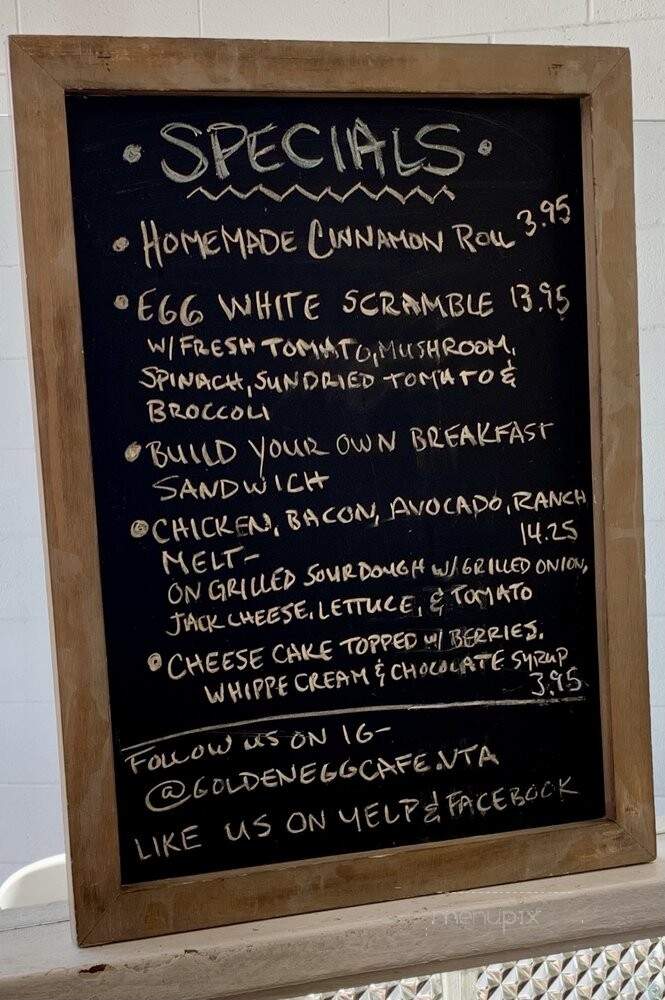 • SPECIALS •
• HOMEMADE CINNAMON ROLL 3.95
• EGG WHITE SCRAMBLE 13.95
W/ FRESH TOMATO, MUSHROOM,
SPINACH, SUNDRIED TOMATO &
BROCCOLI
• BUILD YOUR OWN BREAKFAST
SANDWICH
• CHICKEN, BACON, AVOCADO, RANCH
MELT- 14.25
ON GRILLED SOURDOUGH W/ GRILLED ONION,
JACK CHEESE, LETTUCE, & TOMATO
• CHEESE CAKE TOPPED W/ BERRIES,
WHIPPE CREAM & CHOCOLATE SYRUP
3.95
FOLLOW US ON IG-
@GOLDENEGGCAFE.VTA
LIKE US ON YELP & FACEBOOK
menupix